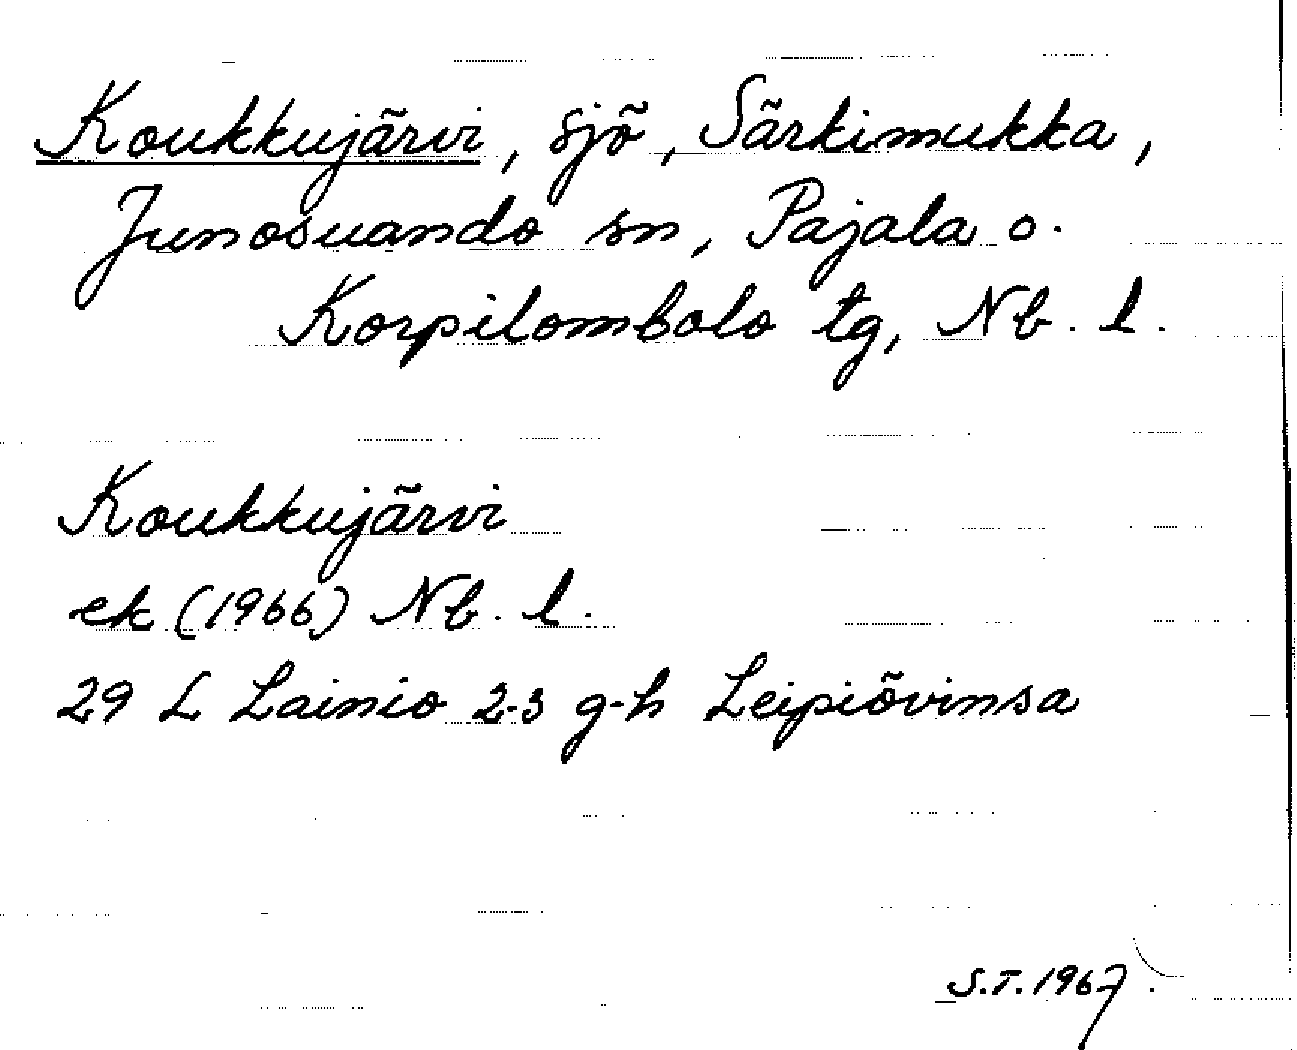 Koukkujärvi, sjö, Särkimukka,
Junosuando sn, Pajala o.
Korpilombolo tg, Nb. l.
Koukkujärvi
ek (1966) Nb. l.
29 L Lainio 2-3 g-h Leipiövinsa
S.T. 1967.